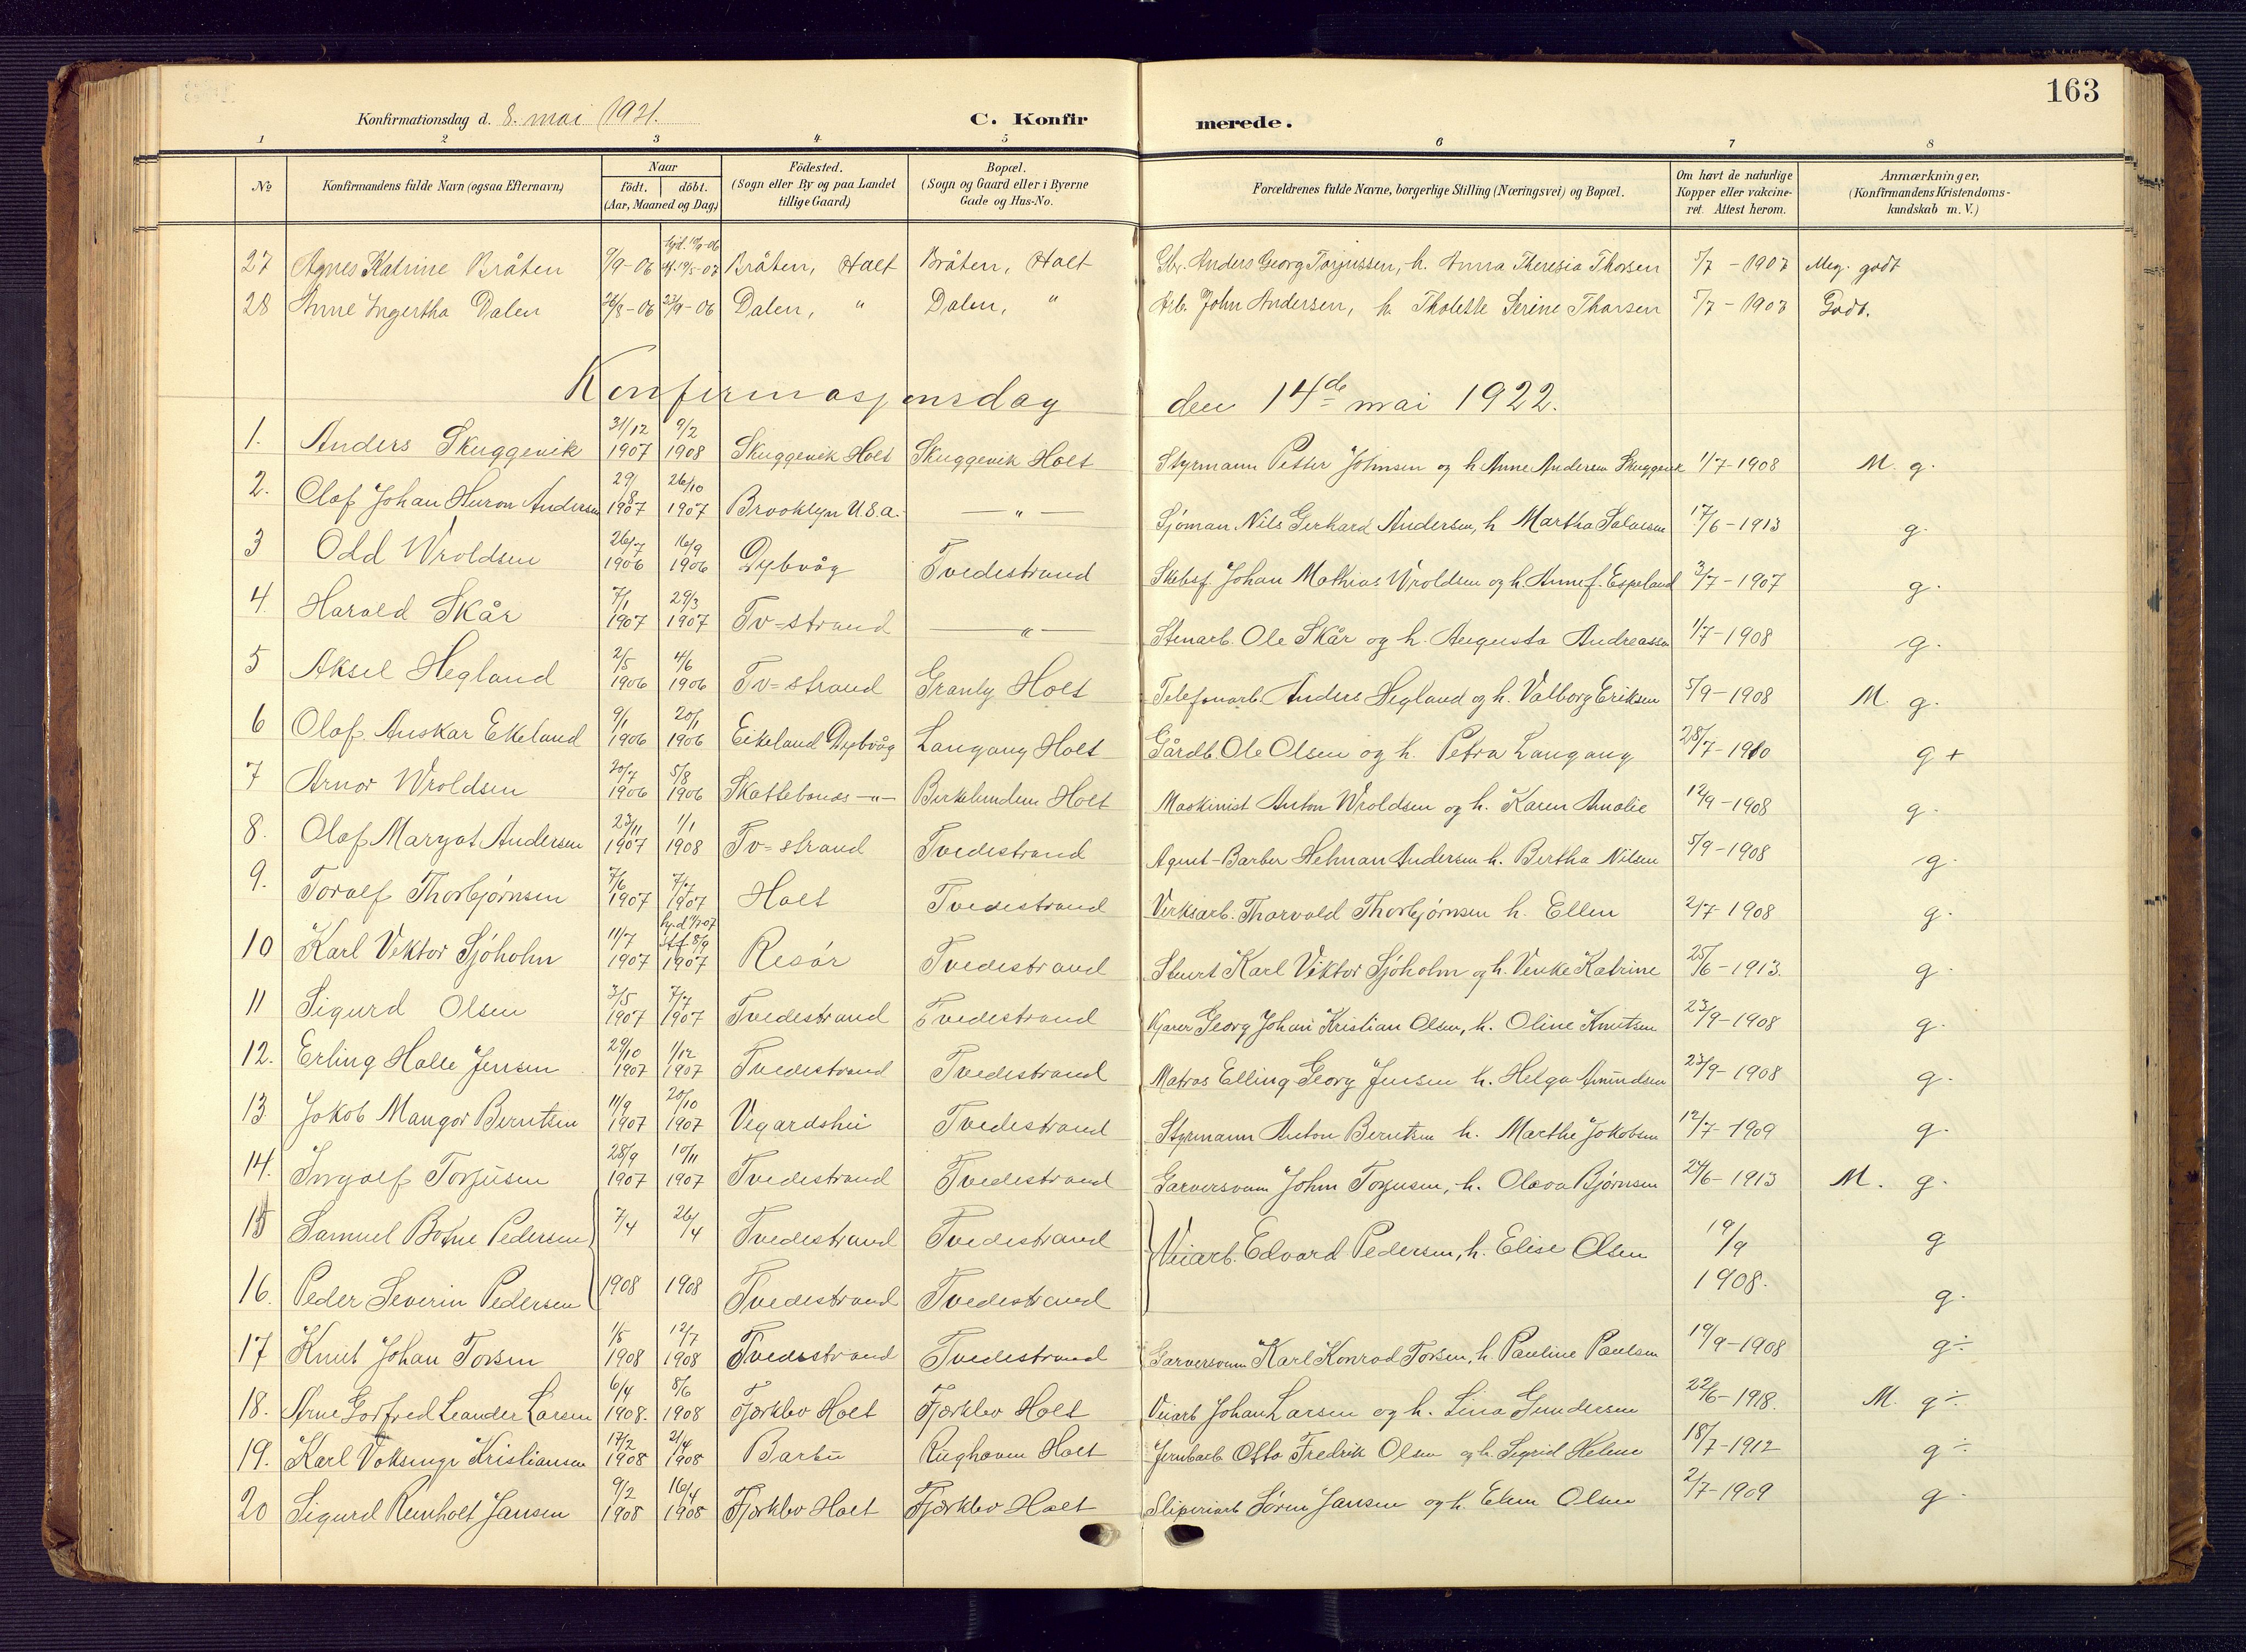 163
Konfirmationsdag d. 8. mai 1921. C. Konfirmerede.
1 2 3 4 5 6 7 8
№ Konfirmandens fulde Navn (ogsaa Efternavn) Naar født. døbt. (Aar, Maaned og Dag) Födested. (Sogn eller By og paa Landet tillige Gaard) Bopæl. (Sogn og Gaard eller i Byerne Gade og Hus-No. Forældrenes fulde Navne, borgerlige Stilling (Næringsvei) og Bopæl. Om havt de naturlige Kopper eller vakcineret. Attest herom. Anmærkninger, (Konfirmandens Kristendomskundskab m. V.)
27 Agnes Katrine Bråten 9/9-06 Bråten, Holt Bråten, Holt Anders Georg Torjussen, h. Anna Theresia Thorsen 5/7-1907 Meg. godt
28 Anne Ingertha Dalen 26/8-06 23/9-06 Dalen, " Dalen, " Arb. John Andersen, h. Tholette Serine Thorsen 5/7-1907 Godt.
Konfirmasjonsdag den 14de mai 1922.
1. Anders Skuggevik 31/12 1907 9/2 1908 Skuggevik Holt Skuggevik Holt Styrmann Petter Johnsen og h. Anne Andersen Skuggevik 1/7-1908 M. g.
2. Olof Johan Huron Andersen 29/8 1907 26/10 1907 Brooklyn U.S.a. —"— Sjöman Nils Gerhard Andersen, h. Martha Salvesen 17/6-1913 g.
3 Odd Wroldsen 26/7 1906 16/9 1906 Dybvåg Tvedestrand Skibsf. Johan Mathias Wroldsen og h. Anne f. Espeland 3/7-1907 g.
4. Harald Skår 7/1 1907 29/3 1907 Tv-strand —"— Stenarb. Ole Skår og h. Augusta Andreassen 1/7-1908 g.
5 Aksel Hegland 2/5 1906 4/6 1906 Tv=strand Granly Holt Telefonarb. Anders Hegland og h. Valborg Eriksen 5/9-1908 M. g.
6 Olaf Anskar Ekeland 9/1 1906 20/1 1906 Eikeland Dybvåg Langang Holt Gårdb. Ole Olsen og h. Petra Langang 28/7-1910 g +
7 Arnor Wroldsen 20/7 1906 5/8 1906 Skottebones —"— Birkelunden Holt Maskinist Anton Wroldsen og h. Karen Amalie 12/9-1908 g.
8. Olaf Margot Andersen 23/11 1907 1/1 1908 Tv=strand Tvedestrand Agent-Barber Helman Andersen h. Bertha Nilsen 5/9-1908 g.
9. Toralf Thorbjørnsen 7/6 1907 7/7 1907 Holt Tvedestrand Verksarb. Thorvald Thorbjørnsen h. Ellen 2/7-1908 g.
10 Karl Vektor Sjöholm 11/7 1907 stf. 8/9 1907 Risör Tvedestrand Stuert Karl Viktor Sjöholm og h. Venke Katrine 25/6-1913. g.
11 Sigurd Olsen 3/5 1907 7/7 1907 Tvedestrand Tvedestrand Georg Johan Kristian Olsen, h. Oline Knutsen 23/9-1908 g.
12. Erling Halle Jensen 29/10 1907 1/12 1907 Tvedestrand Tvedestrand Matros Elling Georg Jensen h. Helga Amundsen 23/9-1908 g.
13. Jakob Mangor Berntsen 11/9 1907 20/10 1907 Vegardshei Tvedestrand Styrmann Anton Berntsen h. Marthe Jakobsen 12/7-1909 g.
14. Ingolf Torjusen 28/9 1907 10/11 1907 Tvedestrand Tvedestrand Garversvenn John Torjusen, h. Olava Bjørnsen 24/6-1913 M. g.
15 Samuel Bothne Pedersen 7/4 26/4 Tvedestrand Tvedestrand Veiarb. Edvard Pedersen, h. Elise Olsen 19/9 g
16. Peder Severin Pedersen 1908 1908 Tvedestrand Tvedestrand 1908. g.
17 Knut Johan Torsen 1/5 1908 12/7 1908 Tvedestrand Tvedestrand Garversvenn Karl Konrad Torsen, h. Pauline Paulsen 19/9-1908 g÷
18. Arne Gotfred Leander Larsen 6/4 1908. 8/6 1908 Fjørklev Holt Fjørklev Holt Veiarb Johan Larsen og h. Lina Gundersen 22/6-1918. M. g÷
19. Karl Kristiansen 17/2 1908 2/4 1908 Barbu Rughaven Holt Jernbarb Otto Fredrik Olsen og h. Sigrid Helene 18/7-1912 g÷
20 Sigurd Reinholt Jansen 9/2 1908 16/4 1908 Fjørklev Holt Fjørklev Holt Sliperiarb Sören Jansen og h. Elen Olsen 2/7-1909 g.